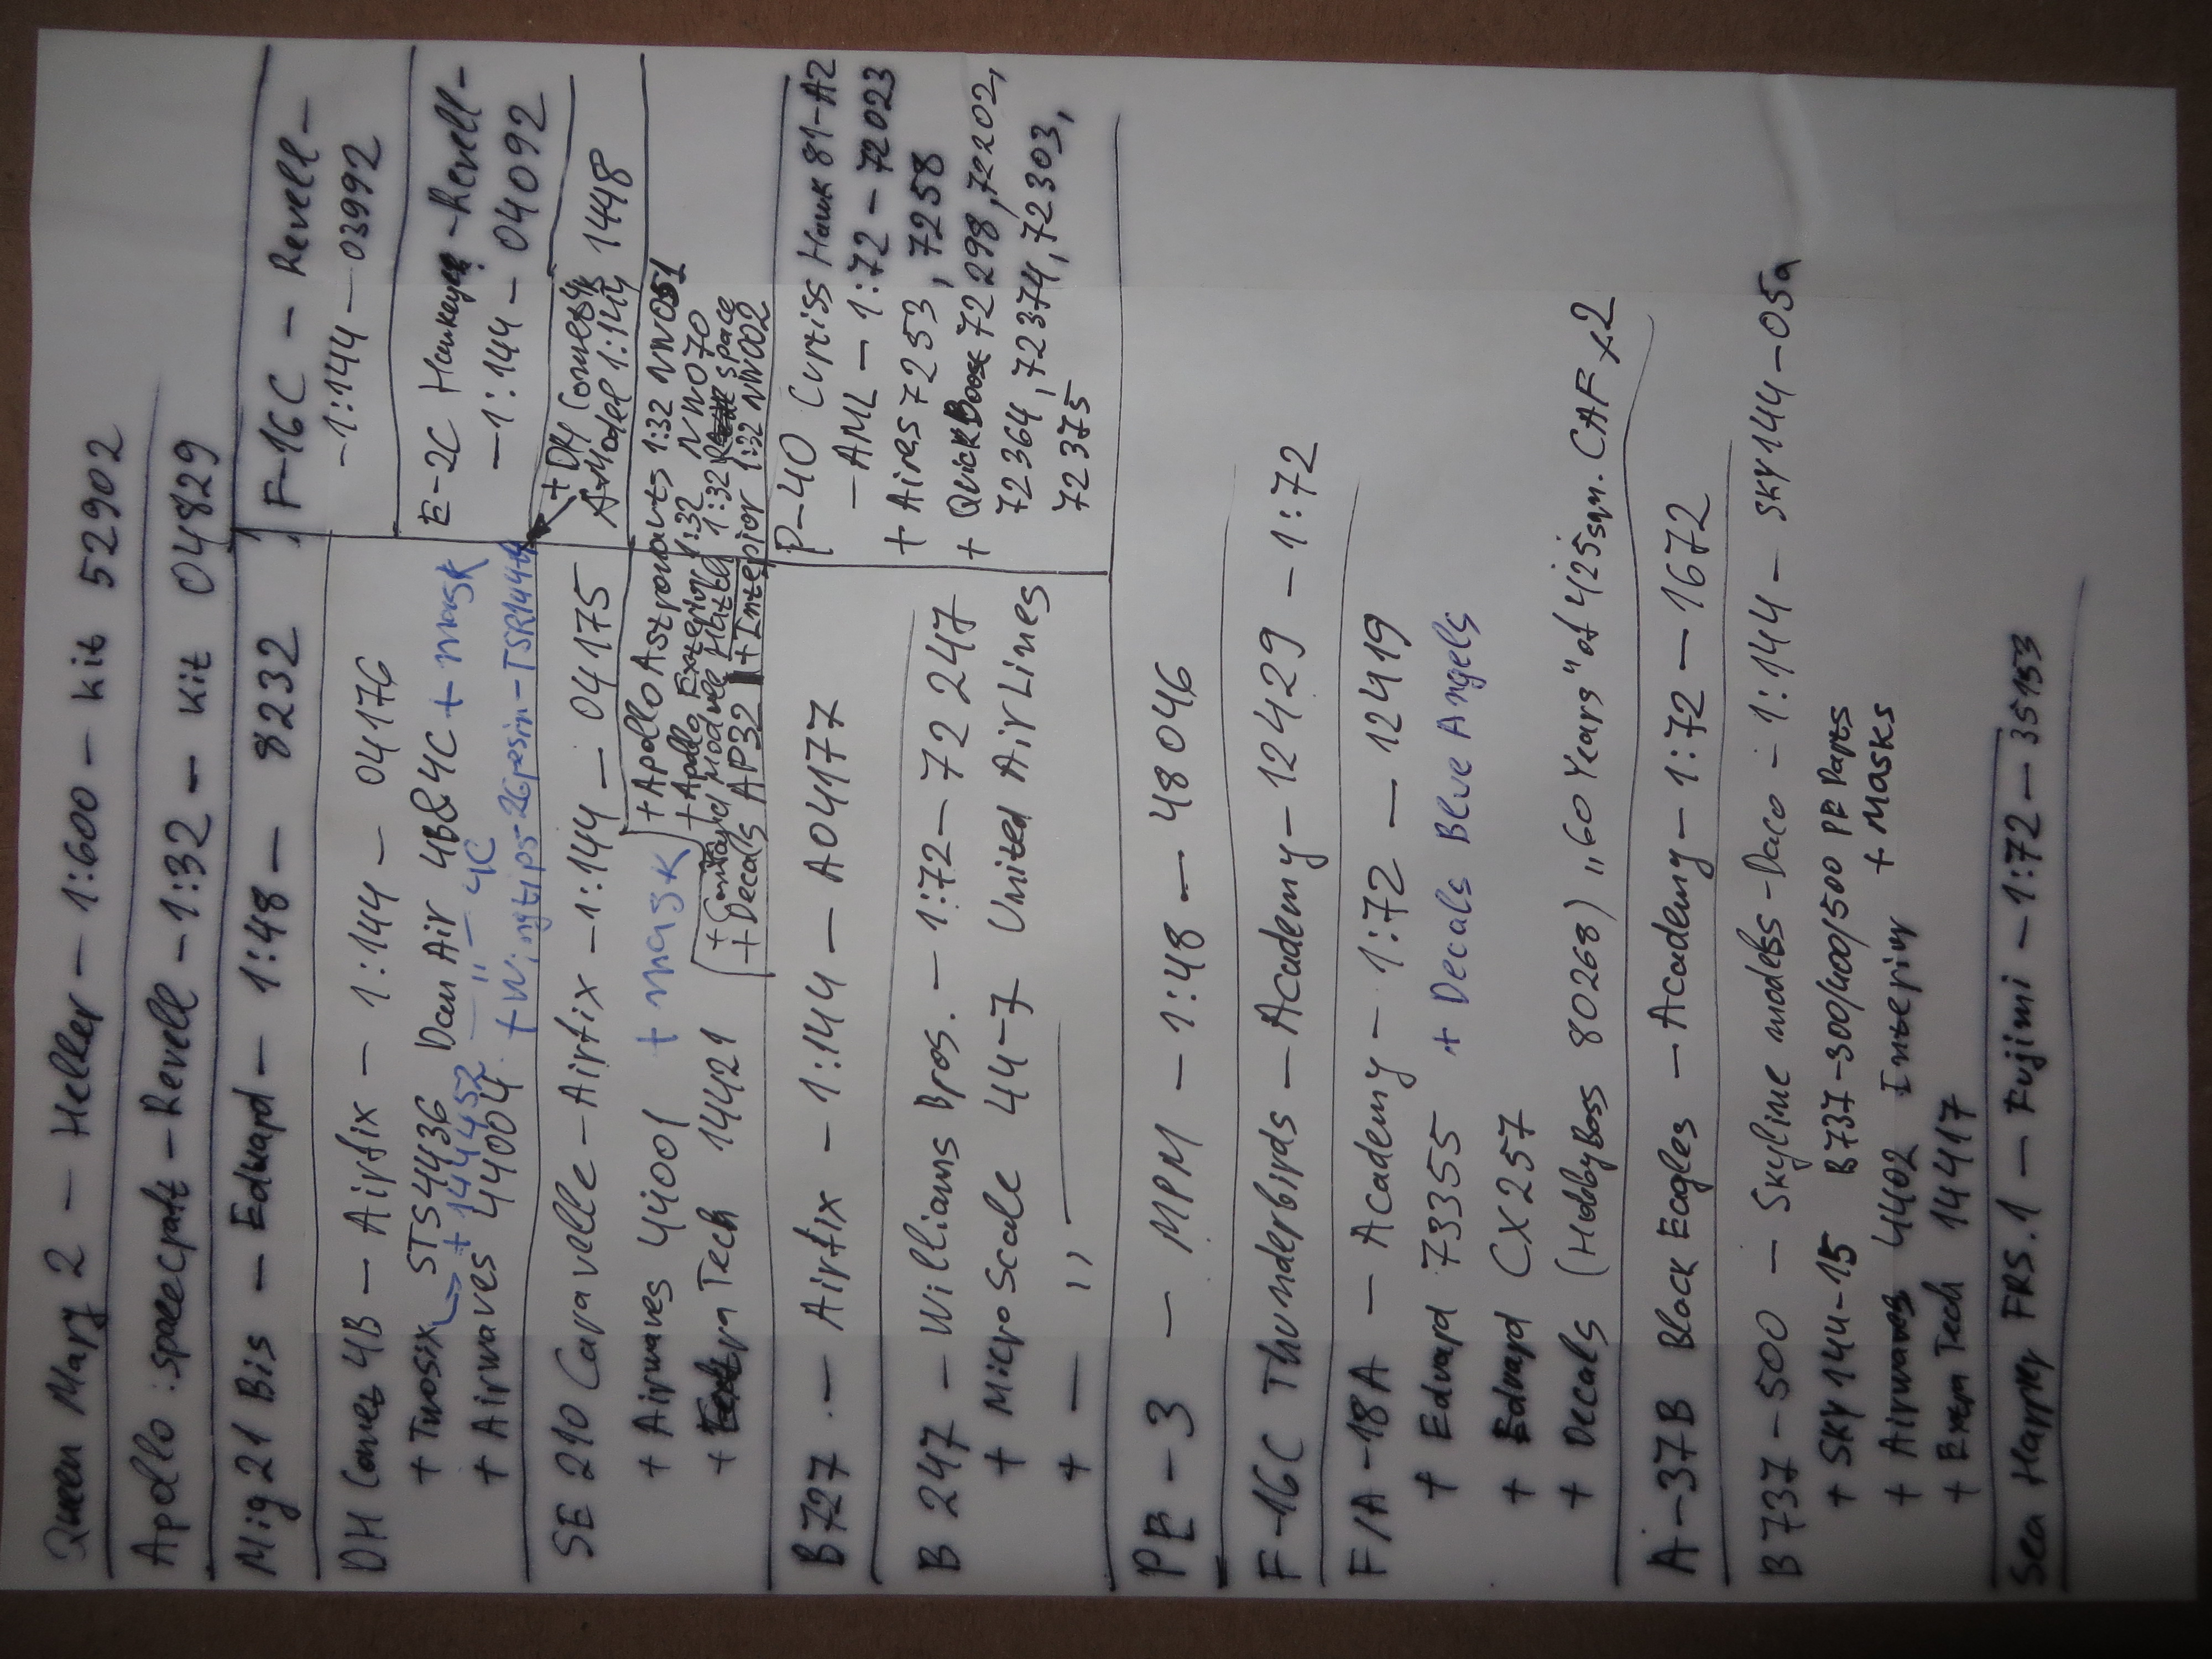 Queen Mary 2 – Heller – 1:600 – Kit 52902
Apollo spacecraft – Revell – 1:32 – Kit 04829
Mig 21 Bis – Eduard – 1:48 – 8232
DH Comet 4B – Airfix – 1:144 – 04176
+ Twosix STS4436 Dan Air 4B&4C + mask
+ 144-452 – " – 4C
+ Airwaves 44004 + Wingtips-2Gresin-TSR144
SE 210 Caravelle – Airfix – 1:144 – 04175
+ Airwaves 44001 + mask
+ Extra Tech 14421
+ Apollo Astronauts 1:32 NW051
+ Apollo Exterior 1:32 NW070
+ Command Module Hatch 1:32 Real Space
+ Decals AP32 + Interior 1:32 NW002
B727 – Airfix – 1:144 – A04177
B 247 – Williams Bros. – 1:72 – 72 247
+ MicroScale 44-7 United AirLines
+ – ,, –
F-16C – Revell –
– 1:144 – 03992
E-2C Hawkeye – Revell –
– 1:144 – 04092
+ DH Comet 4
A-Model 1:144 1448
P-40 Curtiss Hawk 81-A2
– AML – 1:72 – 72023
+ Aires 7253, 7258
+ QuickBoost 72298, 72202,
72364, 72374, 72303,
72375
PE-3 – MPM – 1:48 – 48046
F-16C Thunderbirds – Academy – 12429 – 1:72
F/A-18A – Academy – 1:72 – 12419
+ Eduard 73355 + Decals Blue Angels
+ Eduard CX257
+ Decals (HobbyBoss 80268) „60 Years" of 425sqn. CAF x2
A-37B Black Eagles – Academy – 1:72 – 1672
B737-500 – Skyline models-Daco – 1:144 – SKY144-05a
+ SKY144-15 B737-300/400/500 PE Parts
+ Airwaves 4402 Interior + Masks
+ Extra Tech 14417
Sea Harrier FRS.1 – Fujimi – 1:72 – 35153